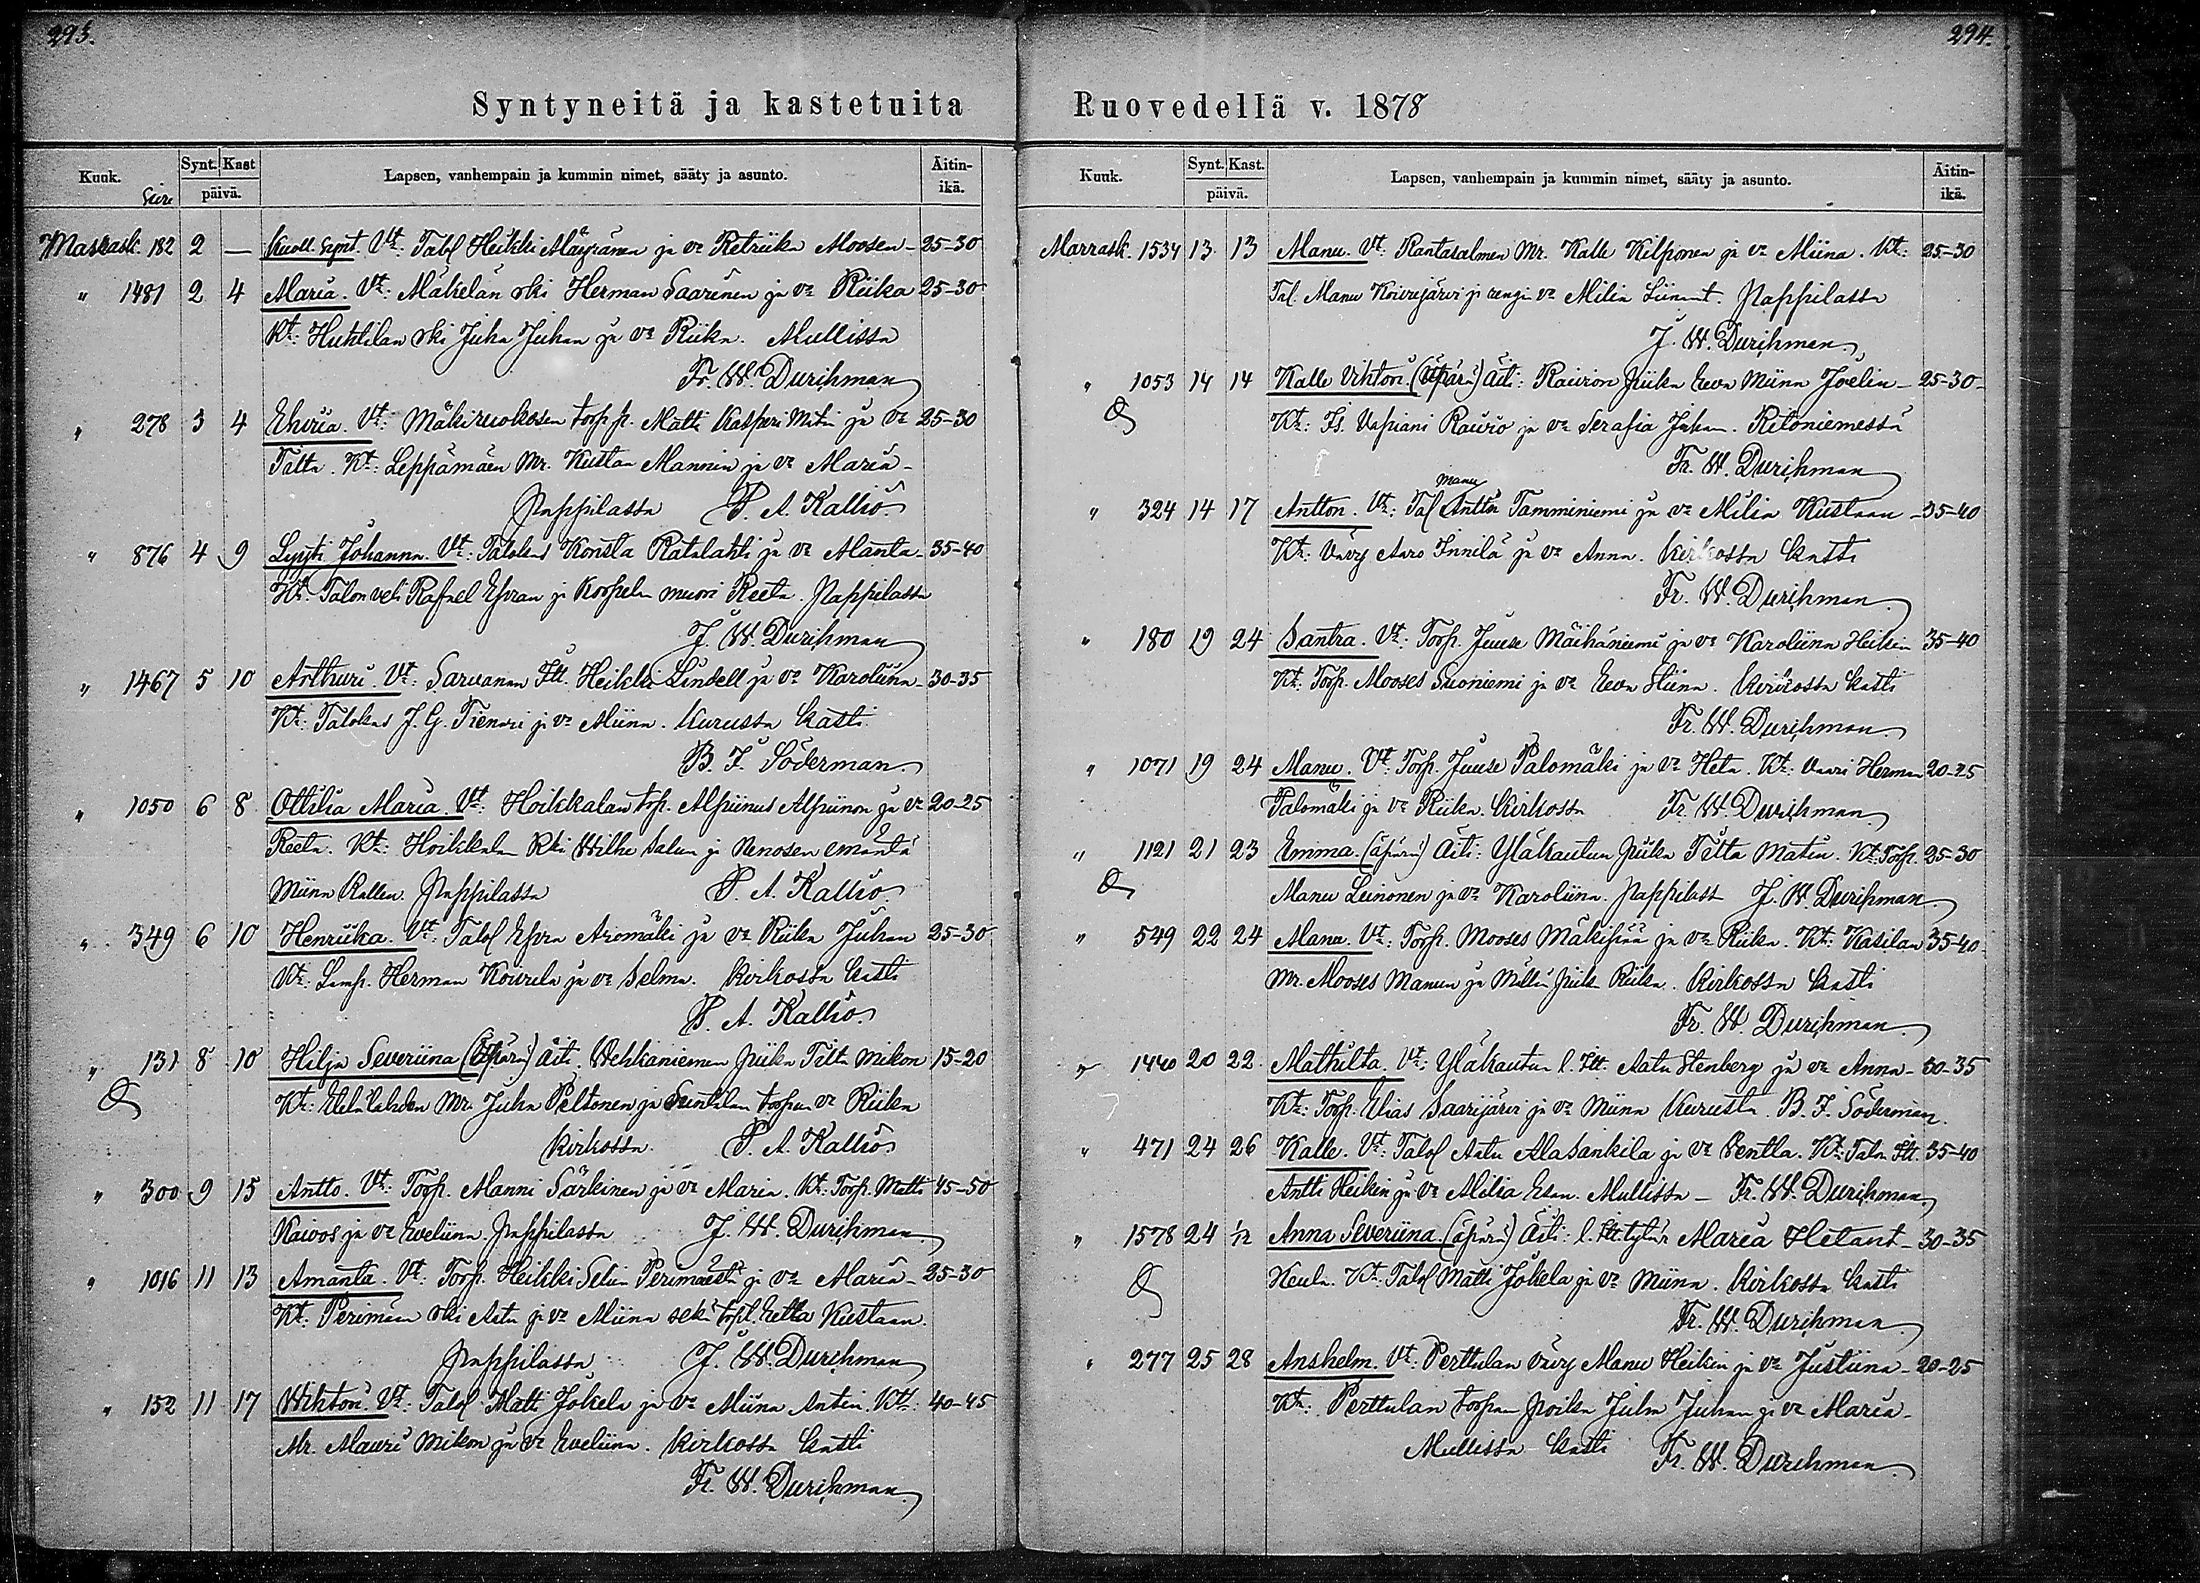 293.
Syntyneitä ja kastetuita
Kuuk. Synt. Kast päivä. Lapsen, vanhempain ja kummin nimet, sääty ja asunto. Äitin-ikä.
Marrask. 182 2 — Kuoll. synt. Vt: Talol Heikki Mäyränen ja vo Retriika Moosen 25-30
" 1481 2 4 Maria. Vt: Mäkelän rki Herman Saarinen ja vo Riika 25-30
Kt: Huhtilan rki Juha Juhan ja vo Riika. Mullissa
Fr. W. Durchman
" 278 3 4 Elviria. Vt: Mäkiruokosen torp. p. Matti Kasperi Matin ja vo 25-30
Tilta. Kt: Leppämäen Mr. Kustaa Mannin ja vo Maria
Pappilassa P. A. Kallio.
" 876 4 9 Lyyti Johanna. Vt: Talokas Konsta Ratalahti ja vo Manta 35-40
Kt: Talon veli Rafael Efran ja Korpela muori Reeta. Pappilassa
J. W. Durchman
" 1467 5 10 Arthuri. Vt: Sarvanan Itt. Heikki Lindell ja vo Karoliina 30-35
Kt: Talokas J. G. Tienari ja vo Miina. Kurussa kasti
B. F. Söderman
" 1050 6 8 Ottilia Maria. Vt: Hoikkalan torp. Alpiinus Alpiinon ja vo 20-25
Reeta. Kt: Hoikkalan Rki Wilhe Salun ja Nenosen emäntä
Miina Kallen. Pappilassa P. A. Kallio.
" 349 6 10 Henriika. Vt: Talol Efra Aromäki ja vo Riika Juhan 25-30
Kt: Lamp. Herman Kouvela ja vo Selma. Kirkossa kasti
P. A. Kallio.
" 131 8 10 Hilja Severiina (äpärä) äiti. Wehkaniemen piika Tilta Mikon 15-20
Kt: Mr. Juha Peltonen ja torpan vo Riika
Kirkossa. P. A. Kallio
" 300 9 15 Antto. Vt: Torp. Manni Särkinen ja vo Maria. Kt: Torp. Matti 45-50
Kaivos ja vo Eveliina. Pappilassa J. W. Durchman
" 1016 11 13 Amanta. Vt: Torp. Heikki Selin Perimäestä ja vo Maria 25-30
Kt: Perimään rki Aatu ja vo Miina sekä torpl. Eetla Kustaan.
Pappilassa J. W. Durchman
" 152 11 17 Wihtori. Vt: Talol Matti Jokela ja vo Miina Antin. Kt: 40-45
Mr. Mauri Mikon ja vo Eveliina. Kirkossa kasti
Fr. W. Durchman
294.
Ruovedellä v. 1878
Kuuk. Synt. Kast. päivä. Lapsen, vanhempain ja kummin nimet, sääty ja asunto. Äitin-ikä.
Marrask. 1534 13 13 Manu. Vt: Rantasalmen Mr. Kalle Kilponen ja vo Miina. Kt: 25-30
Tal. Manu Koverjärvi ja rengin vo Milia Liinant. Pappilassa
J. W. Durchman
" 1053 14 14 Kalle Vihtori (äpärä) Äiti: Rauvon piika Eeva Miina Joelin 25-30
Kt: Is. Vapiani Rauvo ja vo Serafia Juhan. Ritoniemessä
Fr. W. Durchman
" 324 14 17 Antton. Vt: Tal Manu Anttu Tamminiemi ja vo Milia Kustaan 35-40
Kt: Vävy Aaro Innilä ja vo Anna. Kirkossa kasti
Fr. W. Durchman
" 180 19 24 Santra. Vt: Torp. Juuse Mäihäniemi ja vo Karoliina Heikin 35-40
Kt: Torp. Mooses Suoniemi ja vo Eeva Stiina. Kirkossa kasti
Fr. W. Durchman
" 1071 19 24 Manu. Vt: Torp. Juuse Palomäki ja vo Heta. Kt: Vaari Herman 20-25
Palomäki ja vo Riika. Kirkossa Fr. W. Durchman
" 1121 21 23 Emma. (äpärä) Äiti: Ylähautun piika Tilta Matin. Kt: Torp. 25-30
Manu Leinonen ja vo Karoliina. Pappilass J. W. Durchman
" 549 22 24 Manu. Vt: Torp. Mooses Mäkipää ja vo Riika. Kt: Kasilan 35-40
Mr. Mooses Manun ja piik Riika. Kirkossa kasti
Fr. W. Durchman
" 1440 20 22 Mathilta. Vt: Ylähautun l. Itt. Aatu Stenberg ja vo Anna 30-35
Kt: Torp. Elias Saarijärvi ja vo Miina Kurusta. B. F. Söderman
" 471 24 26 Kalle. Vt: Talol Aatu Alasankila ja vo Pentla. Kt: Talon Itt. 35-40
Antti Heikin ja vo Milia Esan. Mullissa Fr. W. Durchman
" 1578 24 1/12 Anna Severiina. (äpärä) Äiti: l. Itt. tytär Maria Hetant 30-35
Heula. Kt: Talol Matti Jokela ja vo Miina. Kirkossa kasti
Fr. W. Durchman
" 277 25 28 Anshelm. Vt: Perttulan vävy Manu Heikin ja vo Justiina 20-25
Kt: Perttulan torpan poika Juha Juhan ja vo Maria
Mullissa kasti Fr. W. Durchman